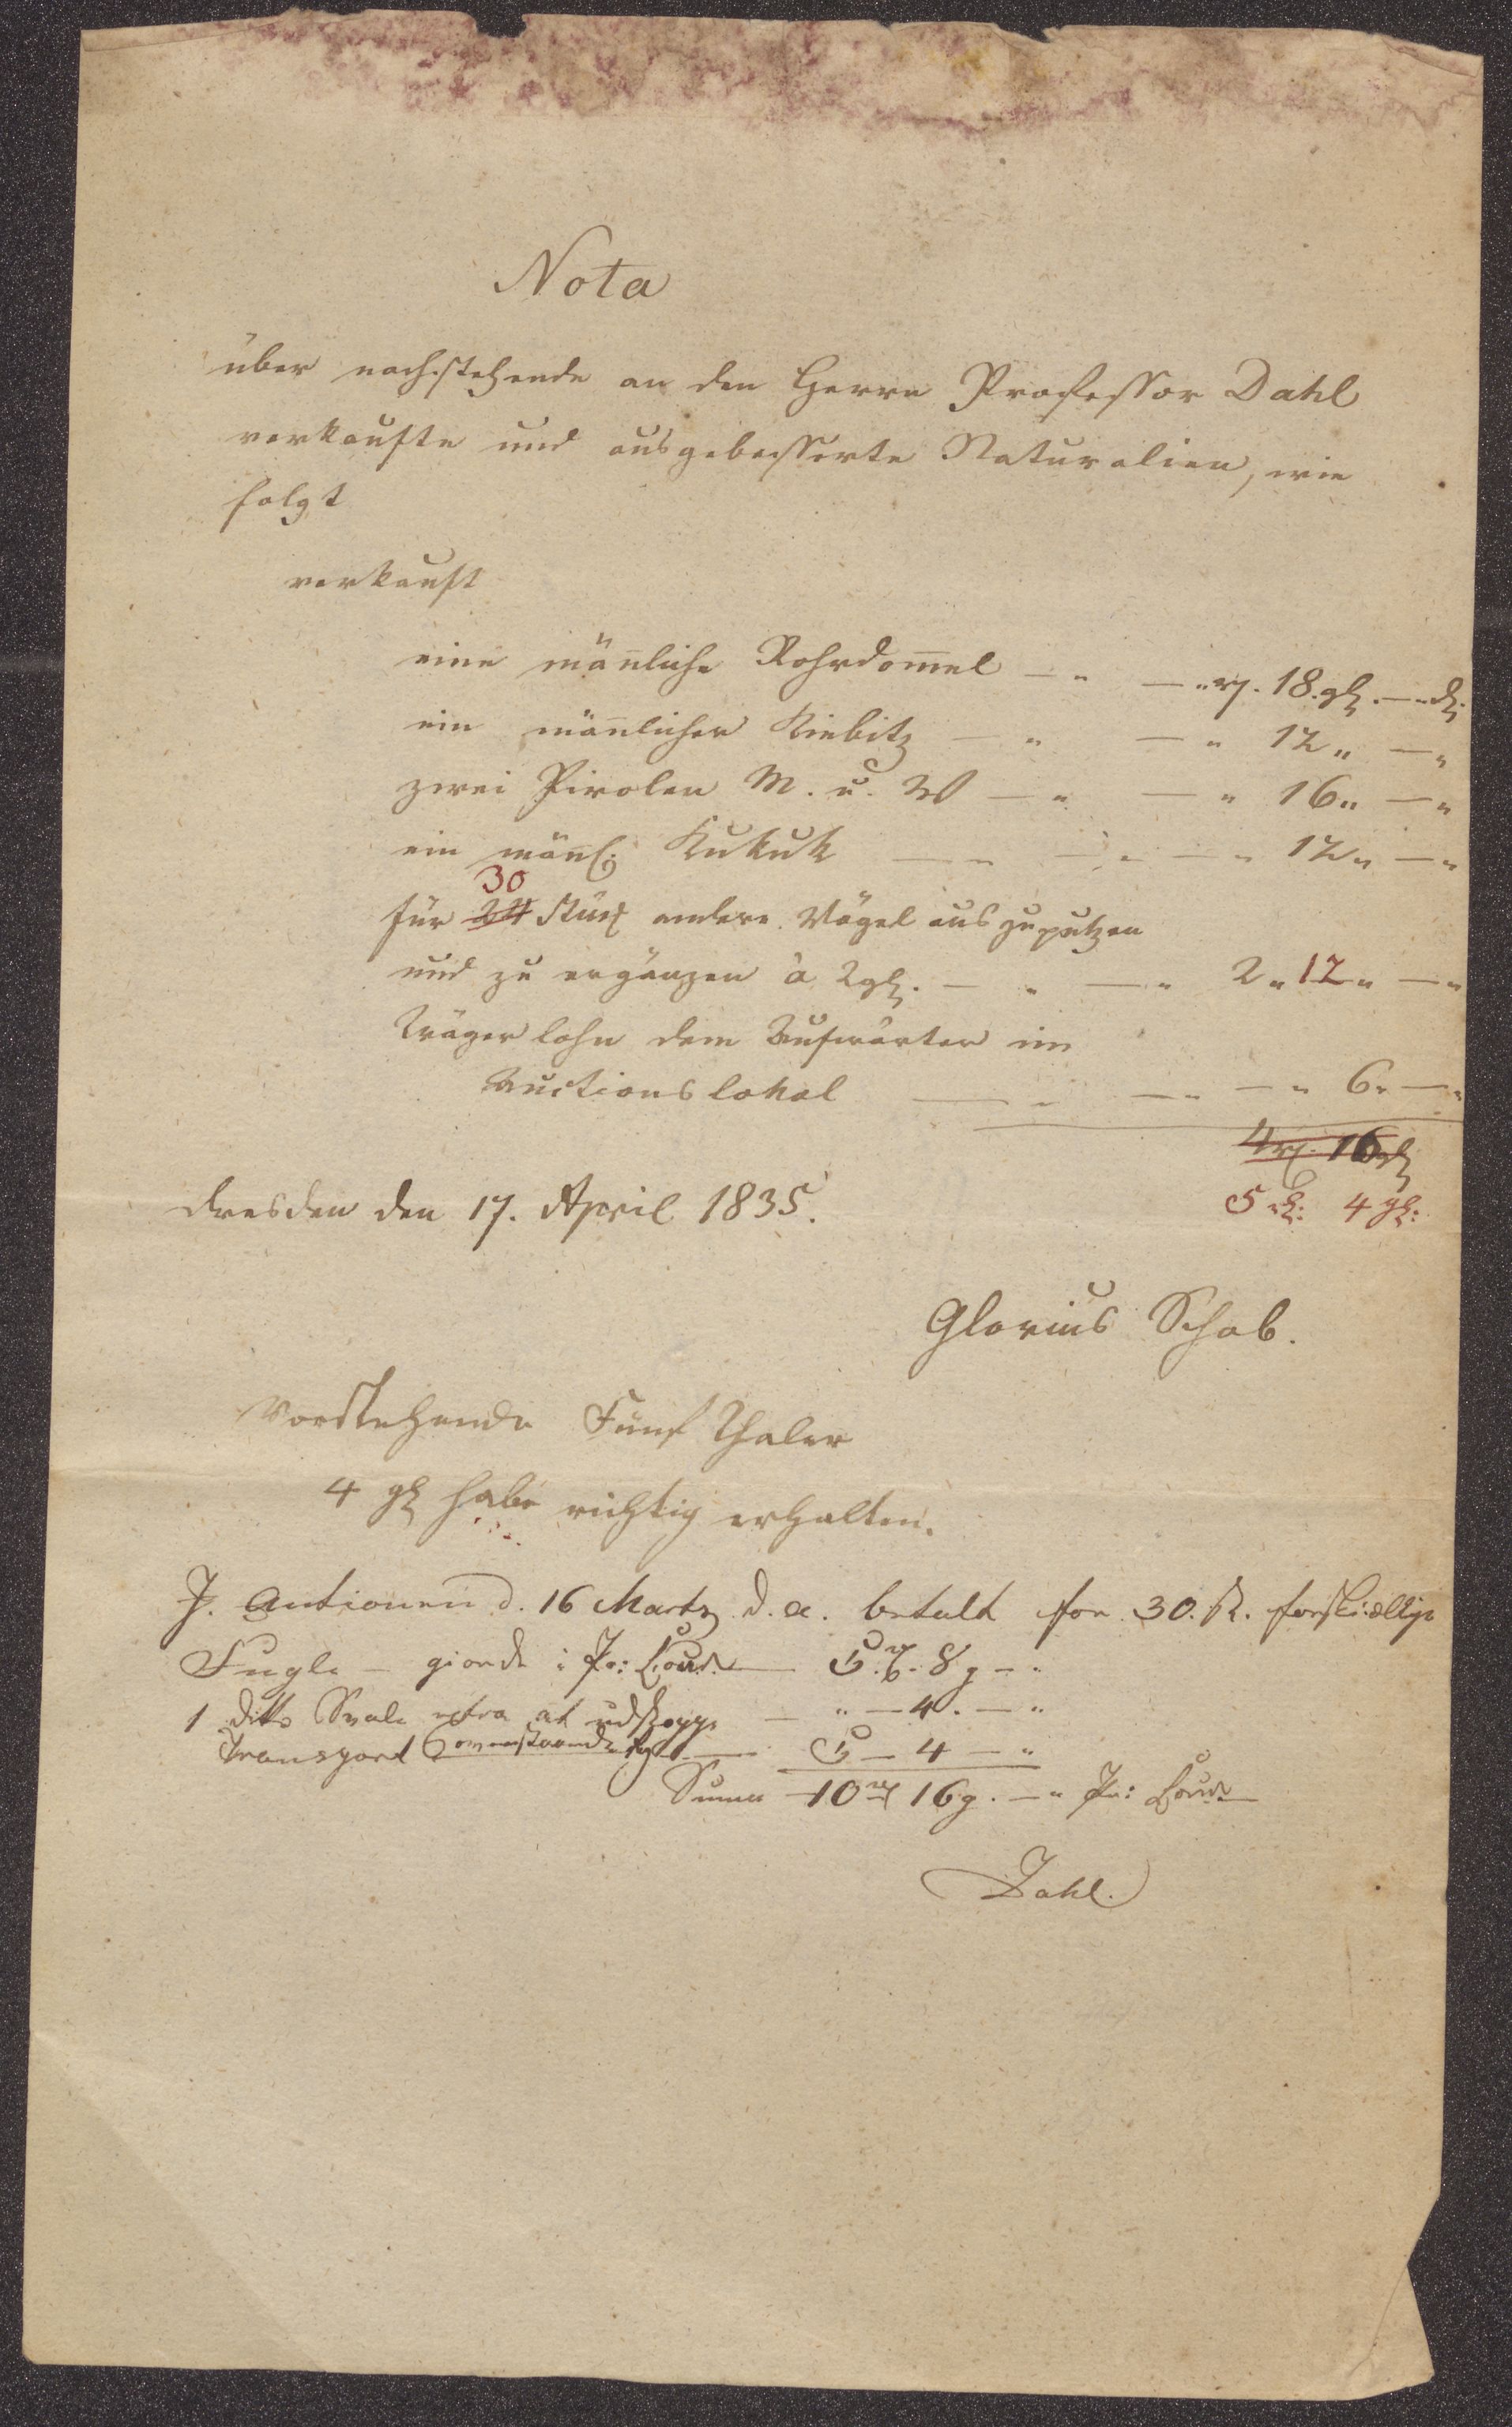 Nota
über nachstehende an den Herrn Professor Dahl
verkaufte und ausgebesserte Naturalien, wie
folgt
verkauft
eine mänliche Rohrdomel — " — " rh. 18. gh. — " dh.
ein mänlicher Kiebitz — " — " 12 " — "
zwei Pirolen M. u. W — " — " 16 " — "
ein mänl: Kukuk — " — " — " 12 " — "
30
für 24 Stück andere Vögel auszuputzen
und zu ergänzen à 2 gh. — " — " 2 " 12 " — "
Trägerlohn dem Aufwärter im
Auctionslokal — " — " — " 6 " — "
4 rh. 16 gh
Dresden den 17. April 1835.
5 rh: 4 gh:
Glorius Schab.
Vorstehende Fünf Thaler
4 gh habe richtig erhalten.
I. Auctionen d. 16 Martz d. a. betalt for 30. St. forskiællige
Fugle — giorde i Pr: Cour. — 5. rh. 8 g — "
1 ditto Svale extra at udstoppe — " — 4. — "
Transport ovenstaaende — 5 — 4 — "
Suma — 10 rh 16 g. — " Pr: Cour.
Dahl.